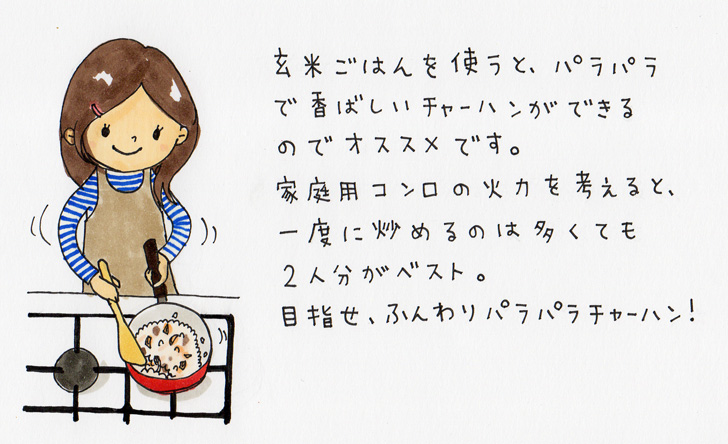 玄米ごはんを使うと、パラパラ
で香ばしいチャーハンができる
のでオススメです。
家庭用コンロの火力を考えると、
一度に炒めるのは多くても
2人分がベスト。
目指せ、ふんわりパラパラチャーハン!